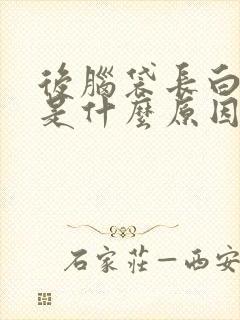 後腦袋長白
是什麼原因
石家莊—西安